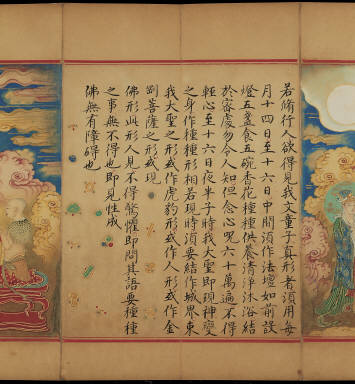 若脩行人欲得見我文童子真形者須用每
月十四日至十六日中間須作法壇如前設
燈五盞食五碗香花種種供養清淨沐浴結
於密處勿令人知但念心呪六十萬遍不得
輕心至十六日夜半子時我大聖即現神變
之身作種種形相若現時須要結作城界東
我大聖之形或作虎豹形或作人形或作金
剛菩薩之形或現
佛形此形人見不得驚懼即問其語要種種
之事無不得也即見性成
佛無有障碍也